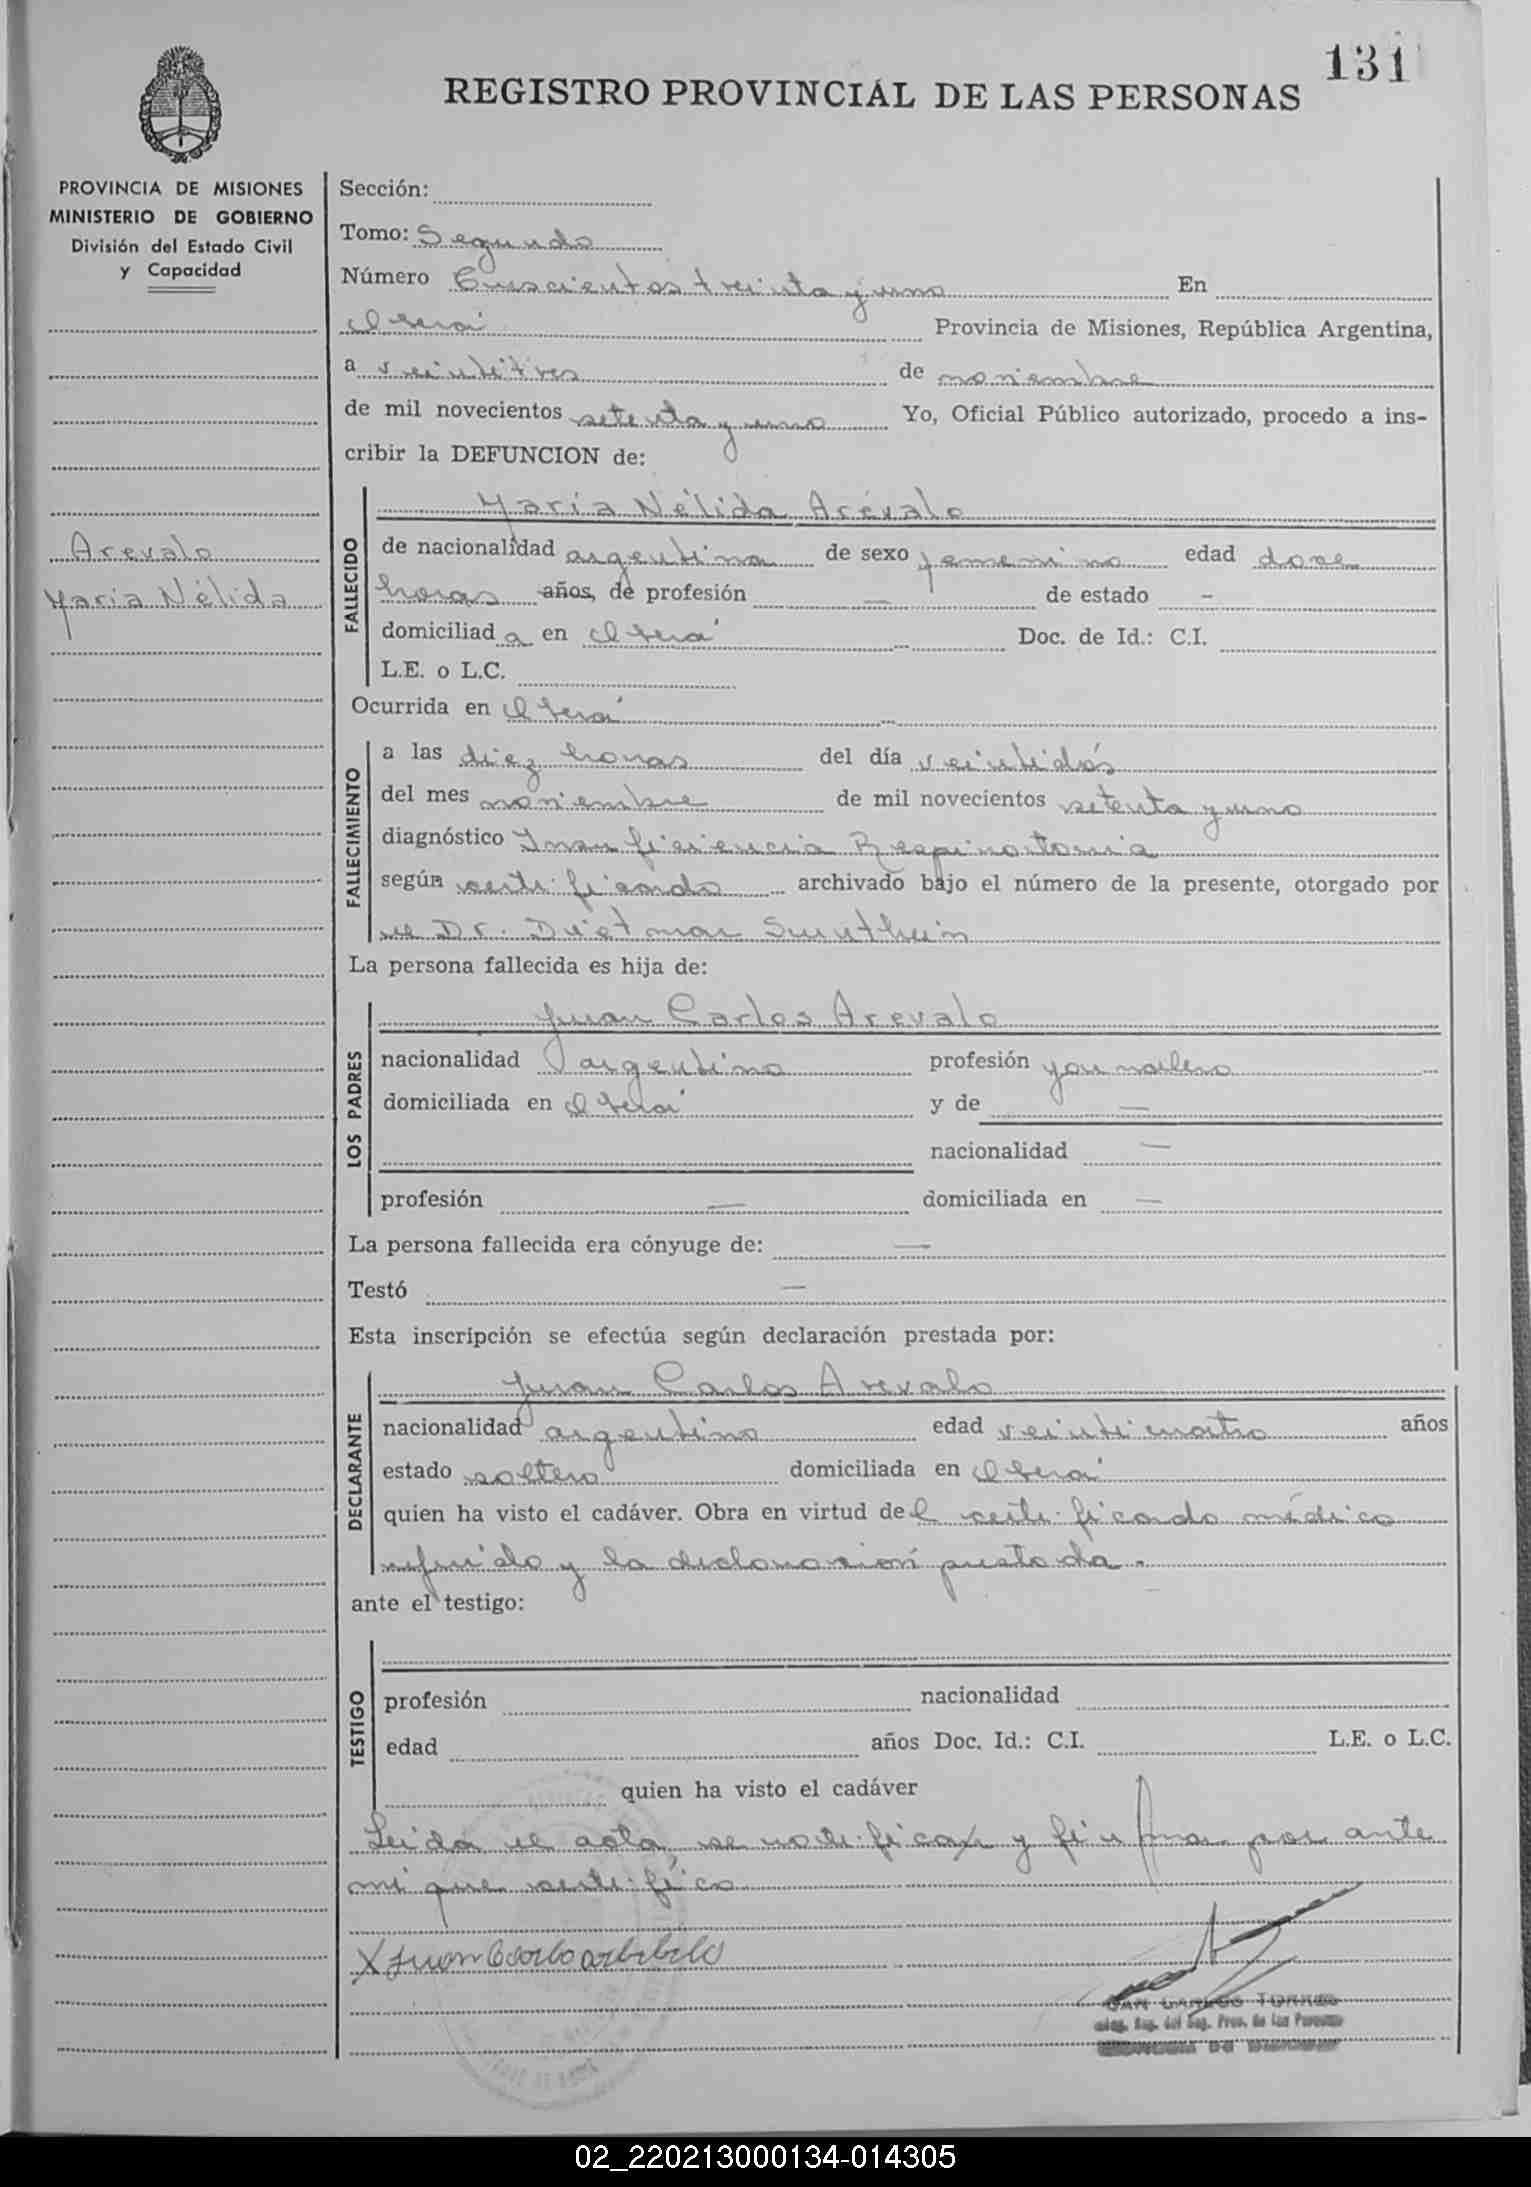 131
REGISTRO PROVINCIAL DE LAS PERSONAS
PROVINCIA DE MISIONES
MINISTERIO DE GOBIERNO
División del Estado Civil
y Capacidad
Arevalo
Maria Nélida
Sección:
Tomo: Segundo
Número trescientos treinta y uno En
Oberá Provincia de Misiones, República Argentina,
a veintitres de noviembre
de mil novecientos setenta y uno Yo, Oficial Público autorizado, procedo a ins-
cribir la DEFUNCION de:
FALLECIDO
María Nélida Arévalo
de nacionalidad argentina de sexo femenino edad doce
horas años, de profesión — de estado -
domiciliad a en Oberá Doc. de Id.: C.I.
L.E. o L.C.
Ocurrida en Oberá
FALLECIMIENTO
a las diez horas del día veintidós
del mes noviembre de mil novecientos setenta y uno
diagnóstico Insuficiencia Respiratoria
según certificado archivado bajo el número de la presente, otorgado por
el Dr. Dietmar
La persona fallecida es hija de:
LOS PADRES
Juan Carlos Arevalo
nacionalidad argentino profesión jornalero
domiciliada en Oberá y de —
nacionalidad —
profesión — domiciliada en —
La persona fallecida era cónyuge de: —
Testó —
Esta inscripción se efectúa según declaración prestada por:
DECLARANTE
Juan Carlos Arevalo
nacionalidad argentino edad veinticuatro años
estado soltero domiciliada en Oberá
quien ha visto el cadáver. Obra en virtud del certificado médico
referido y la declaración prestada.
ante el testigo:
TESTIGO
profesión nacionalidad
edad años Doc. Id.: C.I. L.E. o L.C.
quien ha visto el cadáver
Leida el acta se notifica y firma por ante
mi que certifico
X Juan Carlo
CARLOS TORRES
02_220213000134-014305